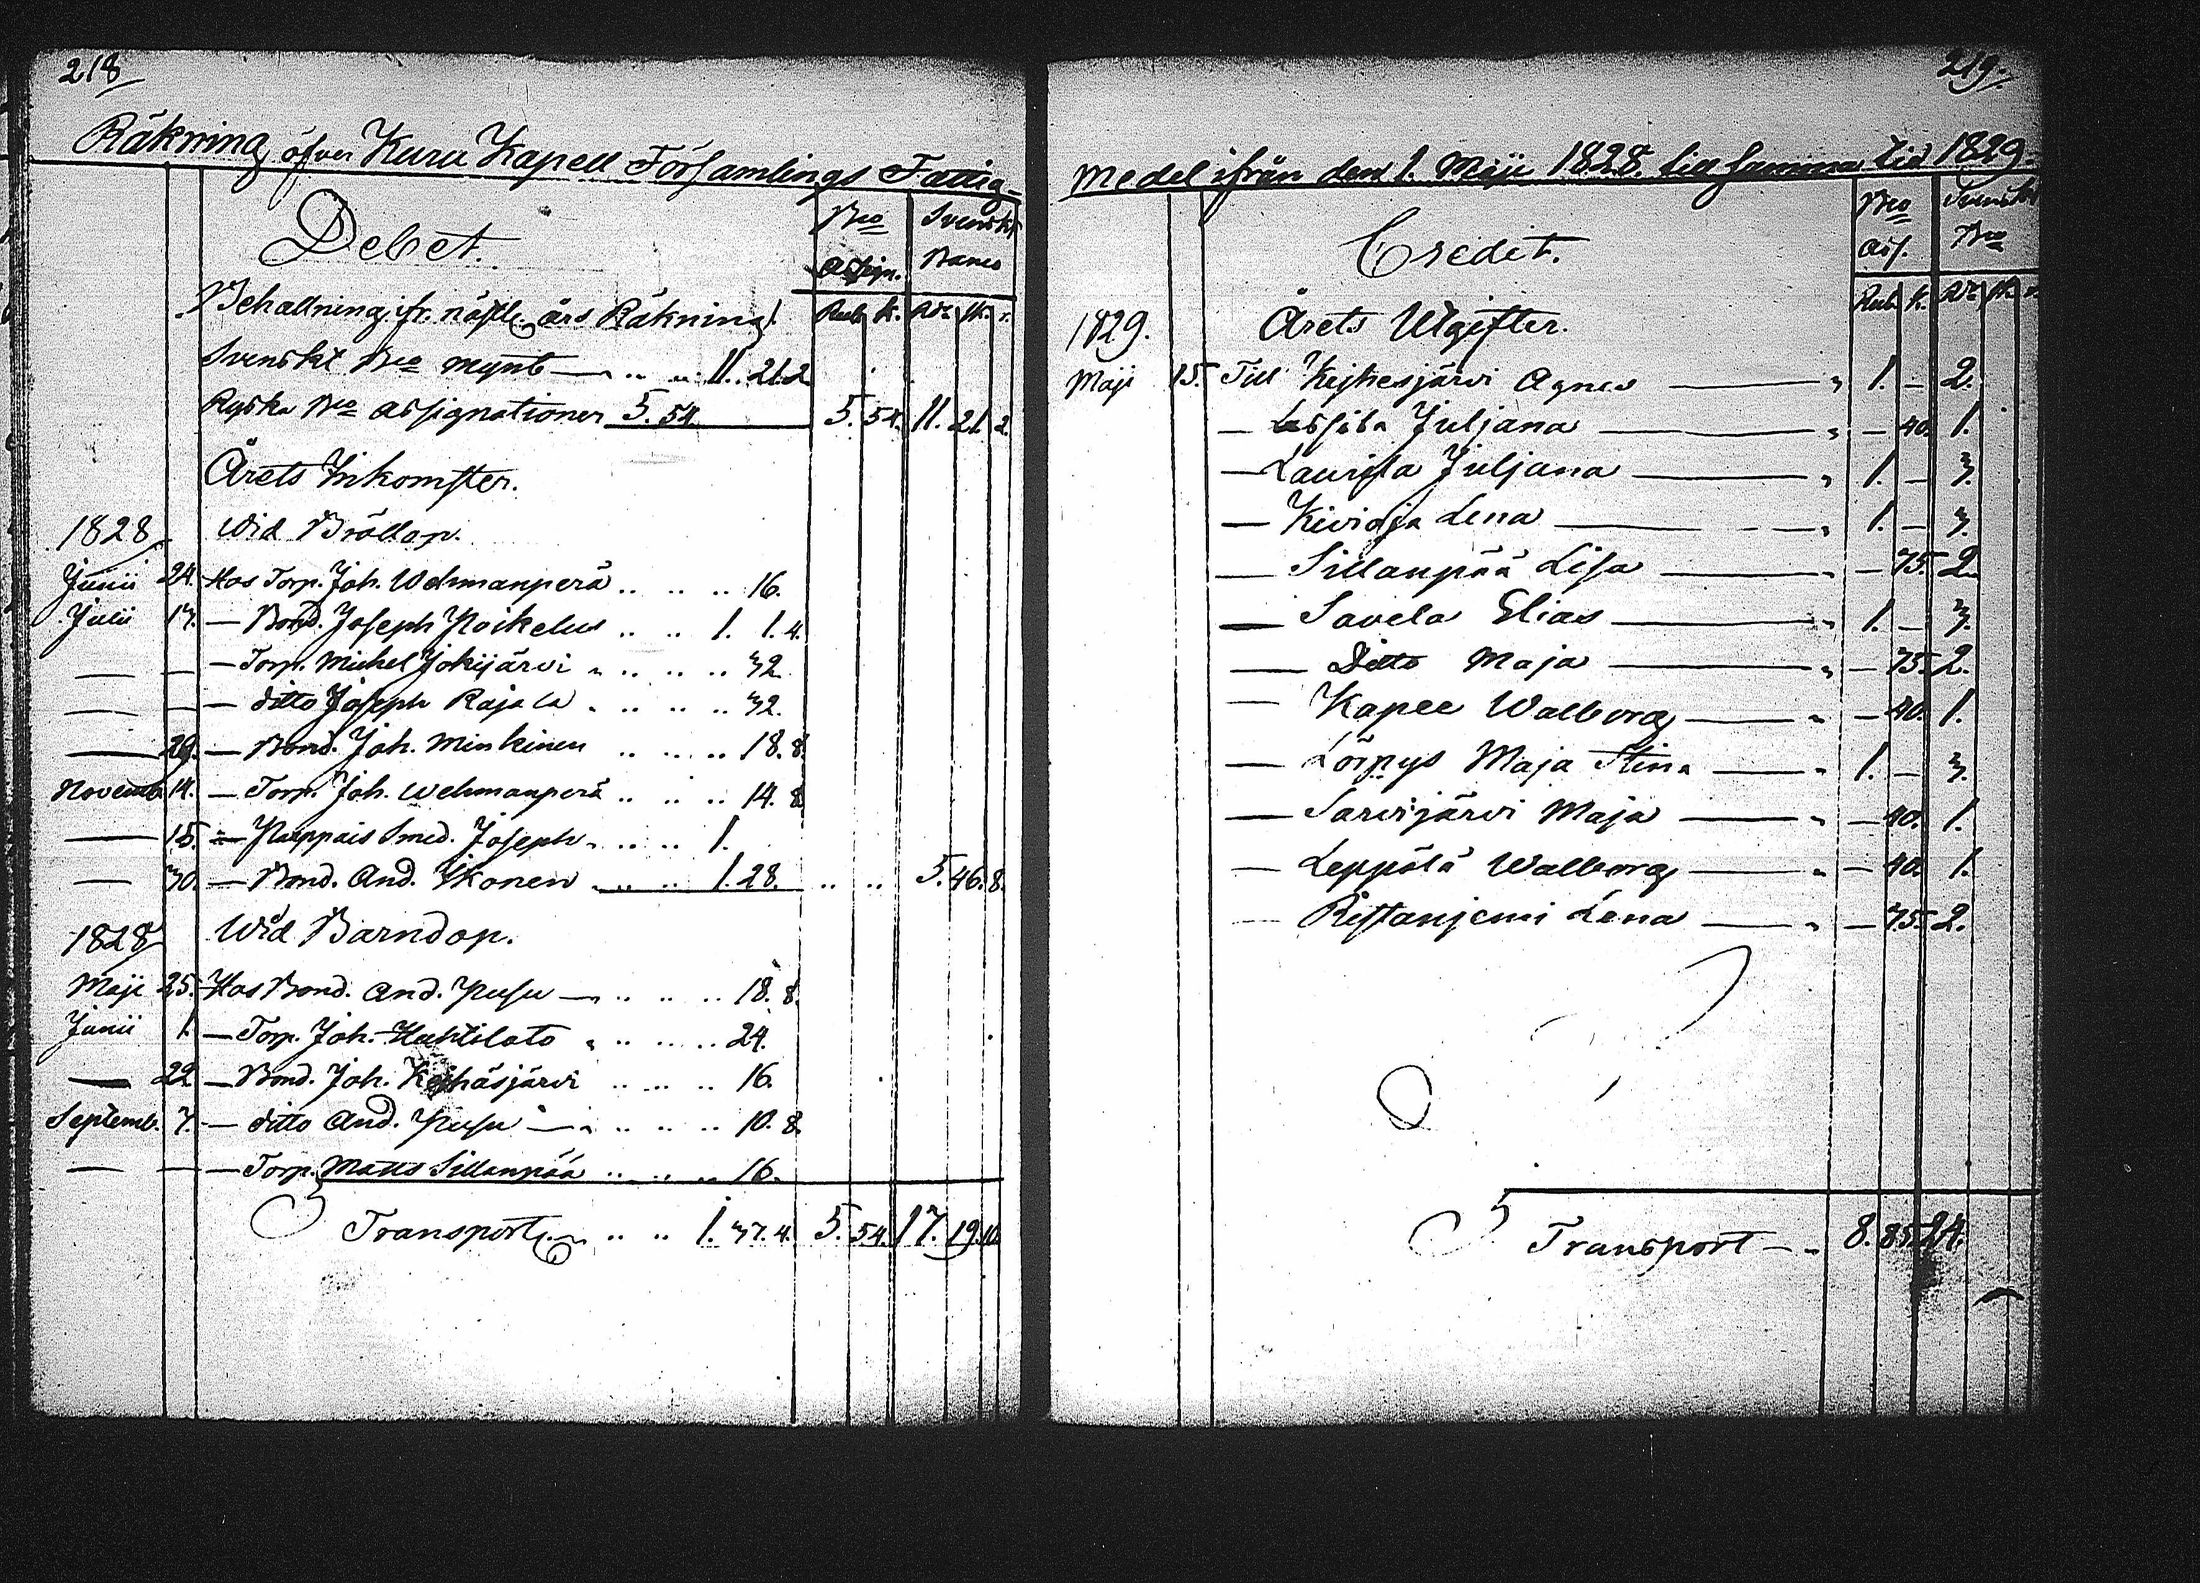 218
Räkning öfver Kuru Kapell Församlings Fattig=
Debet.
Bco Assign. Svenskt Banco
Behållning ifr. nästl. års Räkning. Rub. K. Rdr. sk. r.
Svenskt Bco mynt — 11. 21. 2
Ryska Bco Assignationer 5. 54. 5. 54. 11. 21. 2.
Årets Inkomster.
1828 Wid Bröllop.
Junii 24. Hos Torp. Joh. Wehmanperä 16.
Julii 17. — Bond. Joseph Poikelus 1. 1. 4.
— — — Torp. Michel Jokijärvi 32.
— — — ditto Joseph Rajala 32.
— 29. — Bond. Joh. Minkinen 18. 8.
Novemb. 14. — Torp. Joh. Wehmanperä 14. 8
— 15. — Parppais Smed. Joseph 1.
— 30. — Bond. And. Ikonen 1. 28. 5. 46. 8.
1828 Wid Barndop.
Maji 25. Hos Bond. And. Pusu — 18. 8.
Junii 1. — Torp. Joh. Huhtilato 24.
— 22 — Bond. Joh. Keihäsjärvi 16.
Septemb. 7. — ditto And. Pusu — 10. 8.
— — — Torp. Matts Sillanpää 16.
Transport 1. 37. 4. 5. 54. 17. 19. 10.
219.
Medel ifrån den 1. Maji 1828. till samma tid 1829.
Credit.
Bco Ass. Svenskt Bco
Rub. K. Rdr. sk. r.
1829. Årets Utgifter.
Maji 15. Till Keihesjärvi Agnes — 1. — 2.
— Lassila Juljana — — 40. 1.
— Laurila Juljana — 1. — 3.
— Kivioja Lena — 1. — 3.
— Sillanpää Lisa — — 75. 2.
— Savela Elias — 1. — 3.
— Ditto Maja — — 75. 2.
— Kapee Walborg — — 40. 1.
— Lörpys Maja Stina — 1. — 3.
— Sarvijärvi Maja — — 40. 1.
— Leppälä Walborg — — 40. 1.
— Ristanjemi Lena — — 75. 2.
Transport — 8. 85. 24.